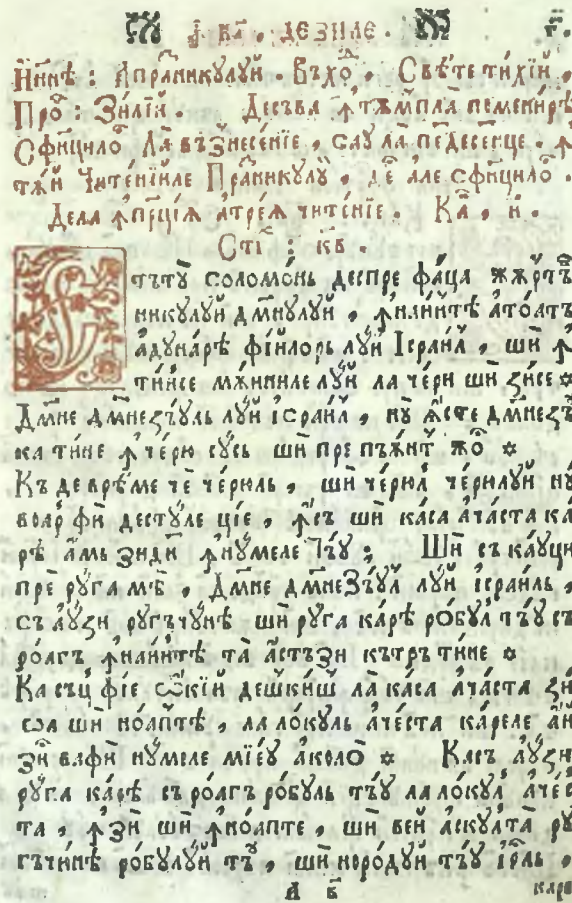 Нинѣ : Апра́никулуй . Въхо̑ . Свѣте тихїи ,
Про̑ : Зи́лїй . Десъва ꙟтъмпла̀ пеменирѣ
Сфи́цило̑ Ла̀ въꙁнесе́нїе , сау ла̀ педесѣце . ꙟ
тѫй Чите́нїиле Пра́никулꙋ̑ , де̑ але сфи́цило̑ .
Дела ꙟпⷬ҇ці́ѧ атре́ѧ чите́нїе . Ка̑ . и҃ .
Сті̑ : кв҃ .
тѣтꙋ̀ соломо́нь деспре фа́ца жѫртъ
никулꙋй дм҃нулꙋй , ꙟнаи́нтѣ ато́атъ
адуна́рѣ фїилорь лꙋ́й І҆сраи́л , шѝ ꙟ
ти́нсе мѫ́ниле лꙋ́й ла че́рю шѝ ꙁи́се *
Дм҃не дм҃неꙁъ́уль лꙋ́й і҆сраи́л , нꙋ̀ ꙗ́сте дм҃неꙁъꙋ̀
ка ти́не ꙟ че́рю сꙋ́сь шѝ пре пѫмѫ́нт жо̑ *
Къ де врѣ́ме чѐ че́рюль , шѝ че́рюл че́рюлуй нꙋ̀
воар фѝ десту́ле ці́е , ꙟсъ шѝ ка́са ача́ста ка́
рѣ а́мь ꙁиди́т ꙟнꙋ́меле Тъ́ꙋ ; Шѝ съ ка́уци
пре рꙋ́га мѣ̀ , Дм҃не дм҃неꙁъ́ул лꙋ́й і҆сраи́ль ,
съ аꙋ́ꙁи ругъчꙋ́нѣ шѝ рꙋ́га ка́рѣ ро́бул тъ́ꙋ съ
ро́агъ ꙟнаи́нтѣ та̀ а́стъꙁи кътръ ти́не *
Ка съць фі́е ѻ҆́кїй дешки́шй ла̀ ка́са ача́ста ꙁи́
ѡа шѝ ноа́птѣ , ла ло́куль аче́ста ка́реле аи́
ꙁи́с вафѝ нꙋ́меле мїе́ꙋ аколо̀ * Касъ аꙋ́ꙁи
рꙋ́га ка́рѣ съ ро́агъ ро́буль тъ́ꙋ ла ло́кул аче́с
та , ꙟ ꙁѝ шѝ ꙟ ноа́пте , шѝ вей аскулта̀ рꙋ
гъчи́нѣ ро́булꙋй тъ́ꙋ , шѝ норо́дꙋй тъ́ꙋ і҆р҃ль ,
А в҃ каре